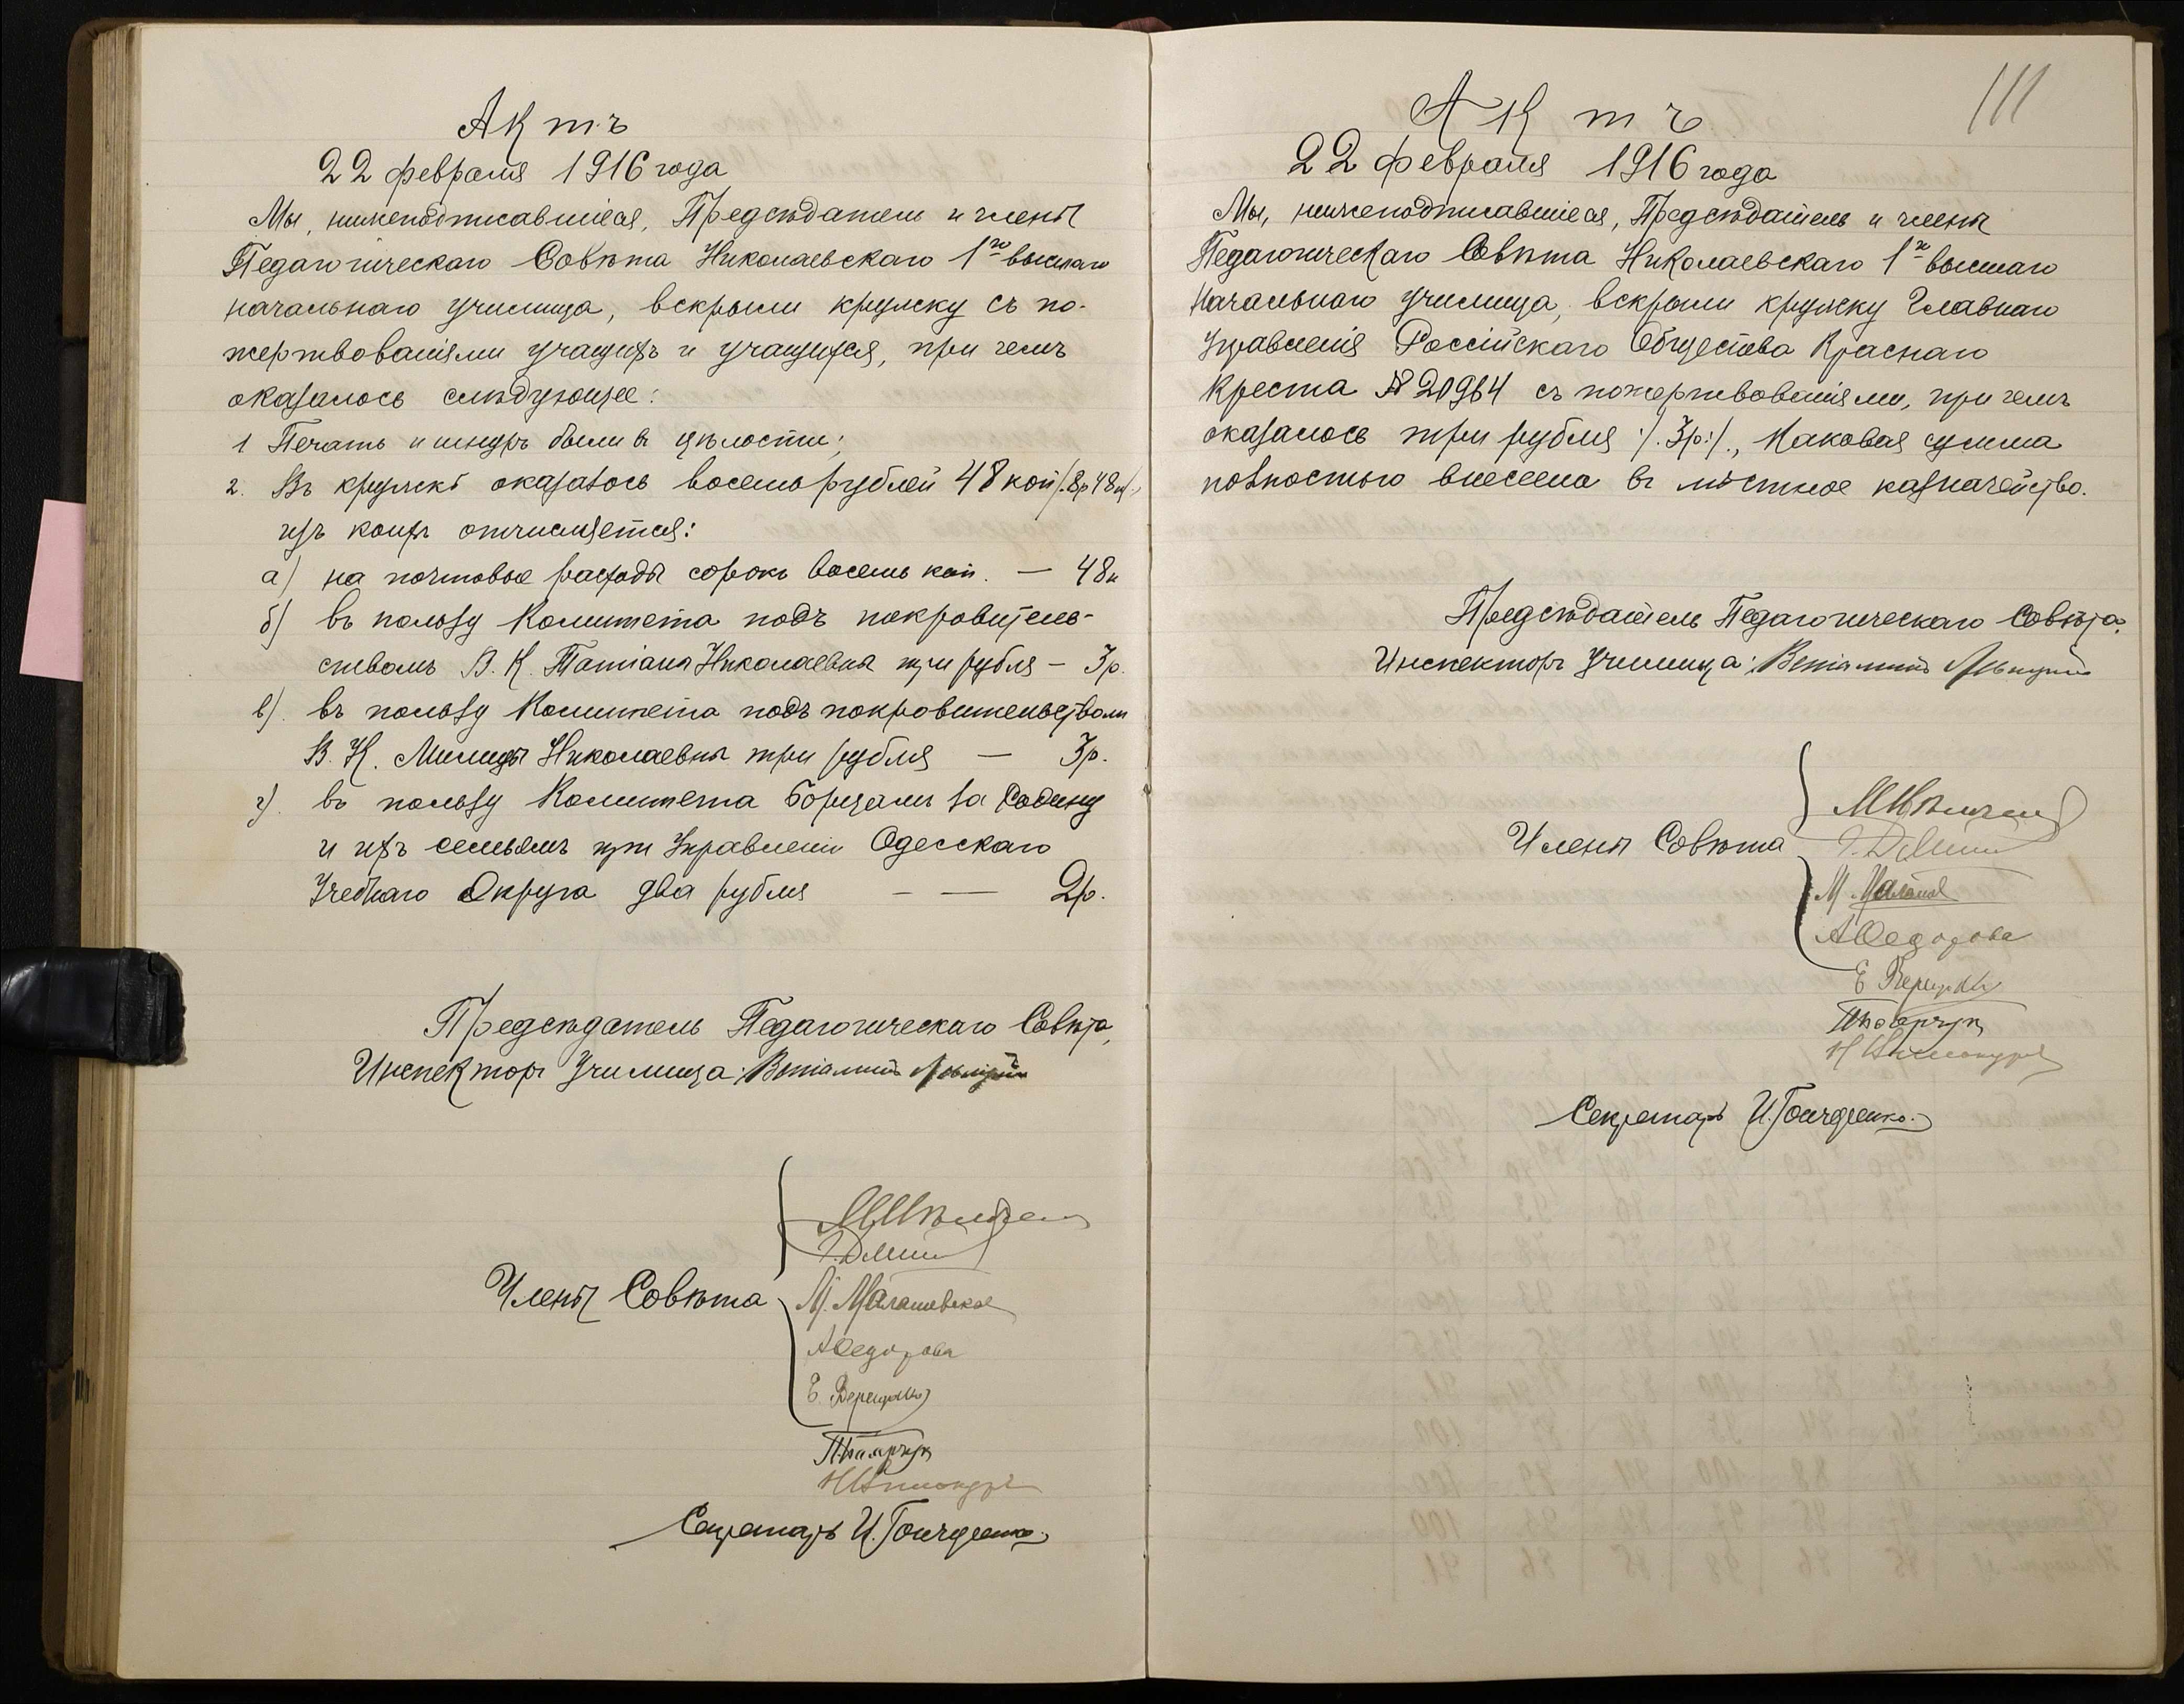 Актъ
22 февраля 1916 года
Мы, нижеподписавшіеся, Предсѣдатель и члены
Педагогическаго Совѣта Николаевскаго 1го высшаго
начальнаго училища, вскрыли кружку съ по-
жертвованіями учащихъ и учащихся, при чемъ
оказалось слѣдующее:
1 Печать и шнуръ были въ цѣлости;
2. Въ кружкѣ оказалось восемь рублей 48 коп /.8р 48к/.,
изъ коихъ отчисляется:
а) на почтовые расходы сорокъ восемь коп. — 48к
б) въ пользу Комитета подъ покровитель-
ствомъ В. К. Татіаны Николаевны три рубля — 3р.
в). въ пользу Комитета подъ покровительствомъ
В. К. Милицы Николаевны три рубля — 3р.
г). въ пользу Комитета Борцамъ за Родину
и ихъ семьямъ при Управленіи Одесскаго
Учебнаго Округа два рубля — — 2р.
Предсѣдатель Педагогическаго Совѣта,
Инспекторъ Училища: Веніаминъ
Члены Совѣта
М. Малашевская
А Ѳедорова
Е.
Секретарь И. Гончаренко.
111
Актъ
22 февраля 1916 года
Мы, нижеподписавшіеся, Предсѣдатель и члены
Педагогическаго Совѣта Николаевскаго 1го высшаго
Начальнаго училища, вскрыли кружку Главнаго
Управленія Россійскаго Общества Краснаго
Креста № 20964 съ пожертвованіями, при чемъ
оказалось три рубля /. 3р./., каковая сумма
полностью внесена въ мѣстное казначейство.
Предсѣдатель Педагогическаго Совѣта,
Инспекторъ Училища: Веніаминъ
Члены Совѣта
М.
А Ѳедорова
Е
Секретарь И. Гончаренко.